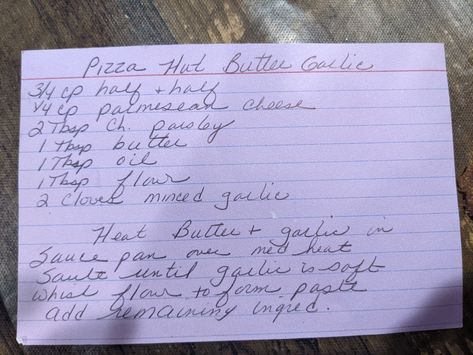 Pizza Hut Butter Garlic
3/4 cp half + half
1/4 cp parmesean cheese
2 Tbsp Ch. parsley
1 Tbsp butter
1 Tbsp oil
1 Tbsp flour
2 Cloves minced garlic
Heat Butter + garlic in
Sauce pan over med heat
Saute until garlic is soft
whisk flour to form paste
add remaining ingred.